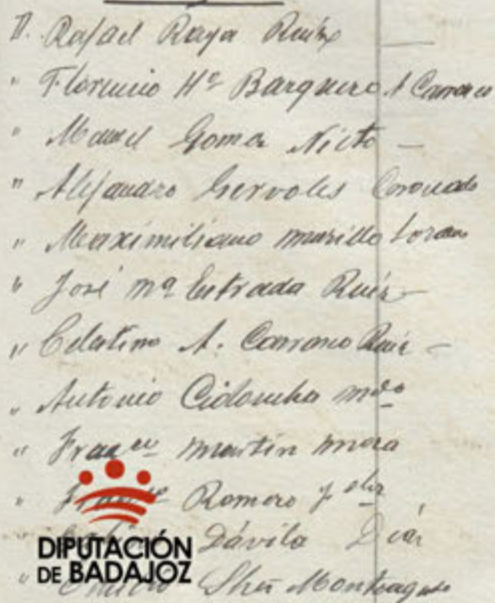 D. Rafael Raya Ruiz
" Florencio Hº Barquero A Carrasco
" Manuel Goma Nieto
" Alejandro Cervoles Coronado
" Maximiliano Murillo
" José Mª Estrada Ruiz
" Celestino A. Carrasco Ruiz
" Antonio Cidoncha
" Franco Martín Mora
" Romero y
Dávila Díaz
" Monteagudo
DIPUTACIÓN
DE BADAJOZ